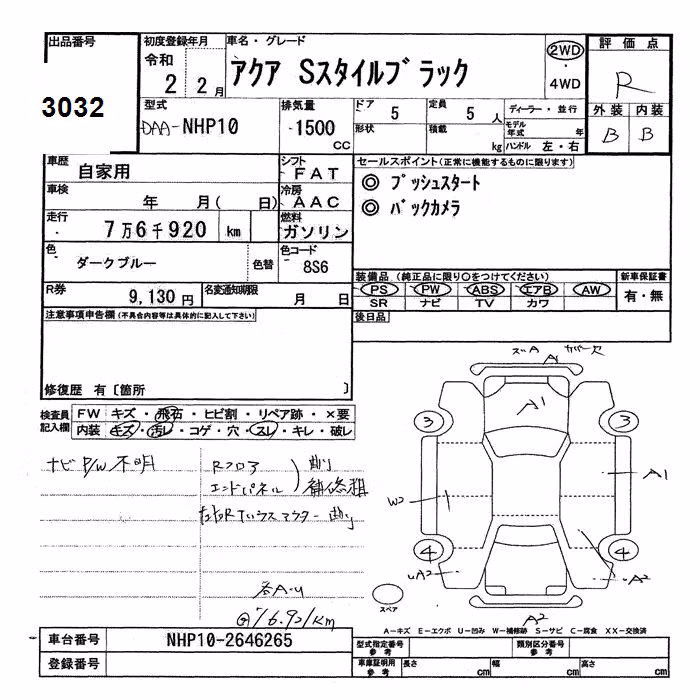 出品番号
3032
初度登録年月
令和
2 2月
車名・グレード
アクア Sスタイルブラック
2WD
・
4WD
評価点
R
外装 内装
B B
型式
DAA-NHP10
排気量
-1500
CC
ドア 5
定員 5 人
形状
積載 kg
ディーラー・並行
モデル年式 年
ハンドル 左・右
車歴 自家用
シフト FAT
車検 年 月( 日)
冷房 AAC
走行 7万6千920 km
燃料 ガソリン
色 ダークブルー 色替
色コード 8S6
R券 9,130円
名変通知期限 月 日
セールスポイント(正常に機能するものに限ります)
◎ プッシュスタート
◎ バックカメラ
装備品 (純正品に限り○をつけてください)
PS PW ABS エアB AW
SR ナビ TV カワ
新車保証書
有・無
後日品
注意事項申告欄(不具合内容等は具体的に記入して下さい)
修復歴 有〔箇所 〕
検査員記入欄
FW キズ・飛石・ヒビ割・リペア跡・×要
内装 キズ・汚レ・コゲ・穴・スレ・キレ・破レ
ナビP/W不明
Rフロア 曲り
エンドパネル 補修
左右Rインサイ
各A-U
@76.921km
ズA カバー欠
A1
A1
3
3
A1
W2
4
4
UA2
UA2
A2
スペア
A-キズ E-エクボ U-凹み W-補修跡 S-サビ C-腐食 XX-交換済
車台番号 NHP10-2646265
登録番号
型式指定番号
参考
類別区分番号
参考
車庫証明用
参考
長さ cm
幅 cm
高さ cm